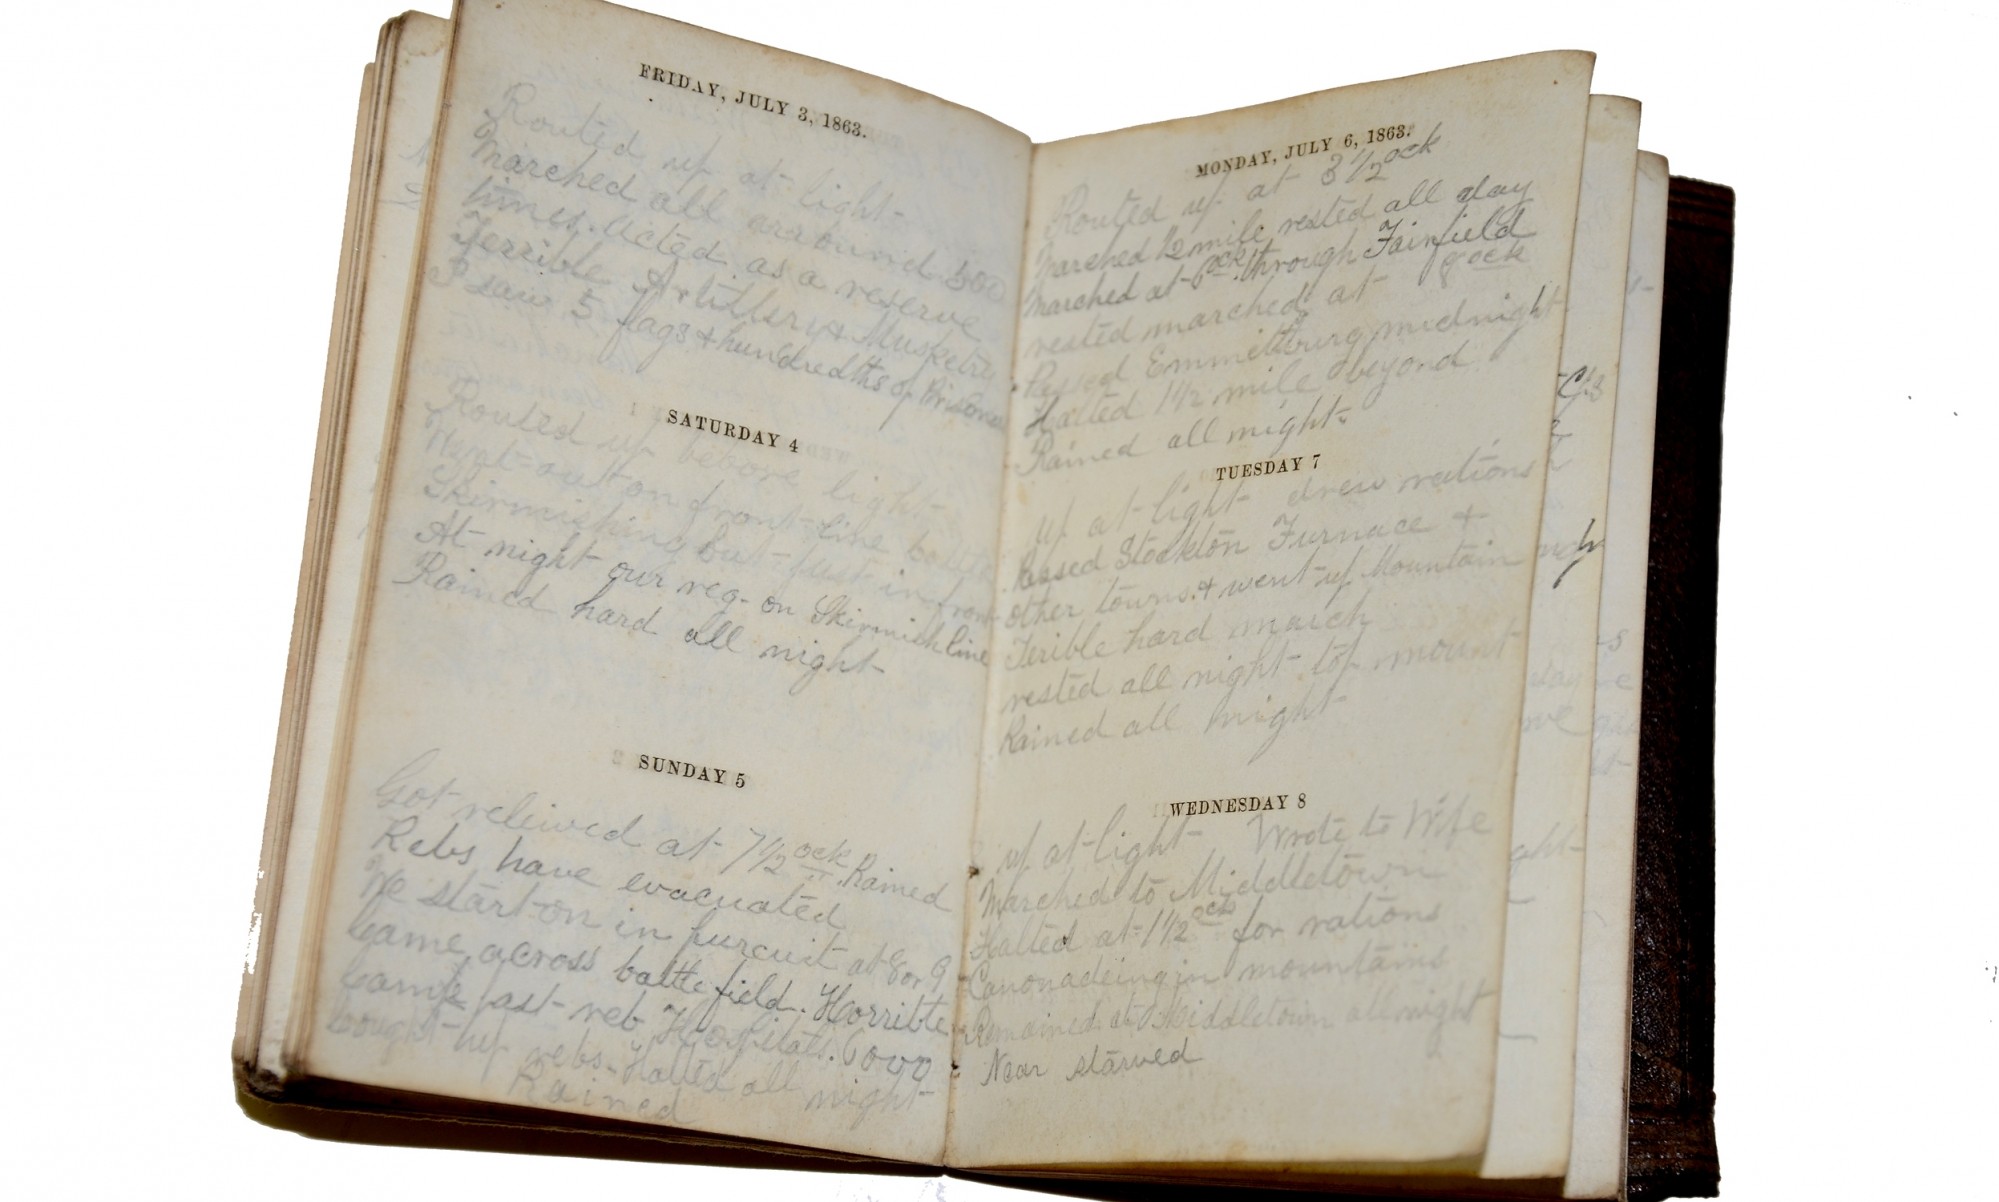 FRIDAY, JULY 3, 1863.
Routed up at light
Marched all around 500
times. Acted as a reserve
Terrible Artillery & Musketry
I saw 5 flags & hundredths of Prisoners
SATURDAY 4
Routed up before light
Went out on front line
Skirmishing but just in front
At night our reg. on Skirmish line
Rained hard all night
SUNDAY 5
Got releived at 7 1/2 ock Rained
Rebs have evacuated
We start on in purcuit at 8 or 9
Came across battlefield. Horrible
Camp past reb Hospitals. 6000
bought up rebs. Halted all night
Rained
MONDAY, JULY 6, 1863.
Routed up at 3 1/2 ock
Marched 1/2 mile rested all day
Marched at 6 ock through Fairfield
rested marched at 8 ock
Passed Emmettburg midnight
Halted 1 1/2 mile beyond
Rained all night
TUESDAY 7
up at light drew rations
Passed Stockton Furnace +
other towns. + went up Mountain
Terible hard march
rested all night top mount
Rained all night
WEDNESDAY 8
up at light Wrote to Wife
Marched to Middletown
Halted at 1 1/2 ock for rations
Canonadeing in mountains
Remained at Middletown all night
Near starved